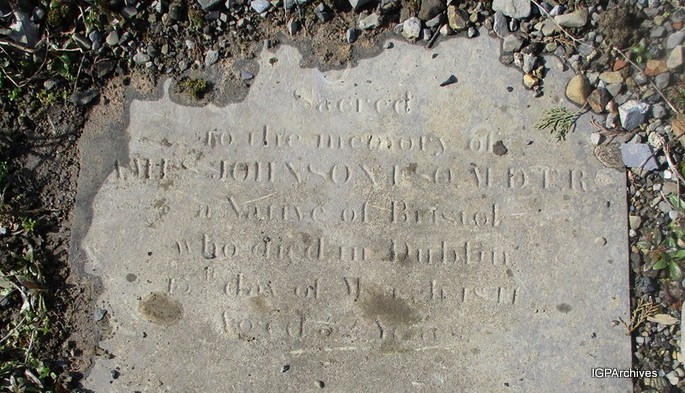 Sacred
to the memory of
JAMES JOHNSON ESQ. M.D. T.R
a Native of Bristol
who died in Dublin
day of March
Aged Years
IGPArchives